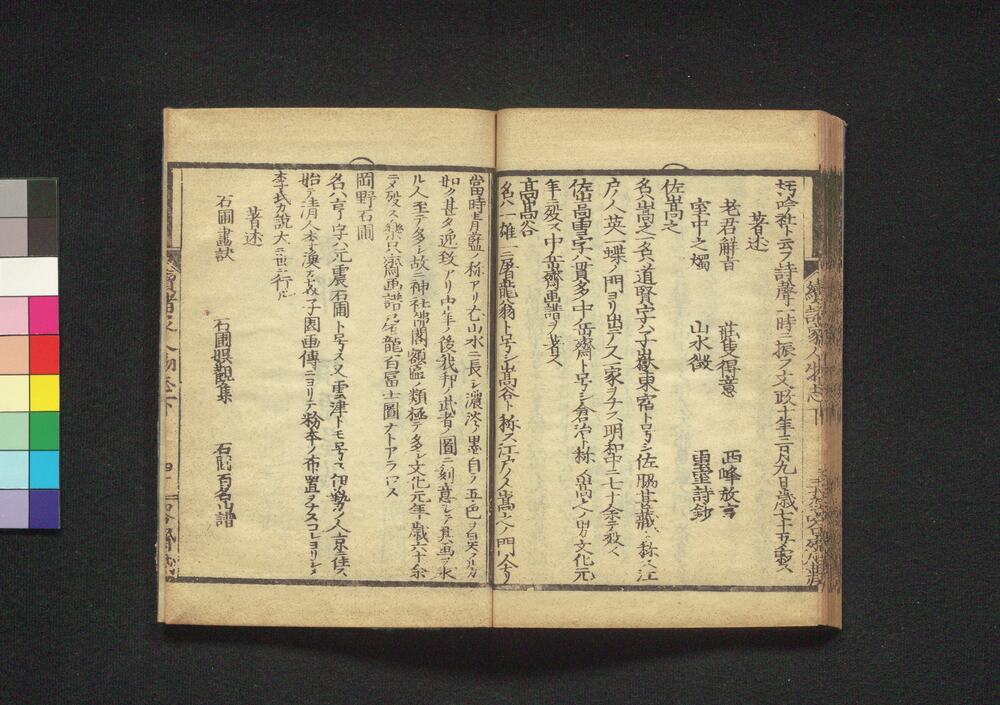 吟社ト云フ詩聲一時ニ振フ文政十年三月九日歳七十五ニ歿ス
著述
老君解音 荘叟得意 西峰放言
室中之燭 山水徴 霊詩鈔
佐嵩之
名ハ嵩之一名ハ道賢字ハ子嶽東宿ト号シ佐脇甚蔵ト称ス江
戸ノ人英一蝶ノ門ヨリ出テ一家ヲナス明和中七十余テ歿ス
佐嵩雪字ハ貫多中岳齋ト号シ倉治ト称ス嵩之ノ男文化元
年ニ歿ス中岳齋画譜ヲ著ス
高嵩谷
名ハ一雄屠龍翁ト号シ嵩谷ト称ス江戸ノ人嵩之ノ門人ナリ
當時ノ称アリ尤山水ニ長シ濃淡ノ墨自ラ五色ヲ
如ク甚タ逸致アリ中年ノ後我邦ノ武者ノ圖ニ刻意シテ其画ヲ求
ル人至テ多シ故ニ神社佛閣額ノ類極テ多シ文化元年歳六十余
ニメ歿ス樂只齋画譜屠龍百冨士圖ナトアラハス
岡野石圃
名ハ亨字ハ元震石圃ト号ス又雲津トモ号ス伊勢ノ人京ニ住ス
始テ清人李漁カ芥子園画傳ニヨリテ粉本ノ布置ヲナスコレヨリシメ
李氏カ説大ニ世ニ行ル
著述
石圃畫訣 石圃娯観集 石圃百名山譜
續諸家人物志 下